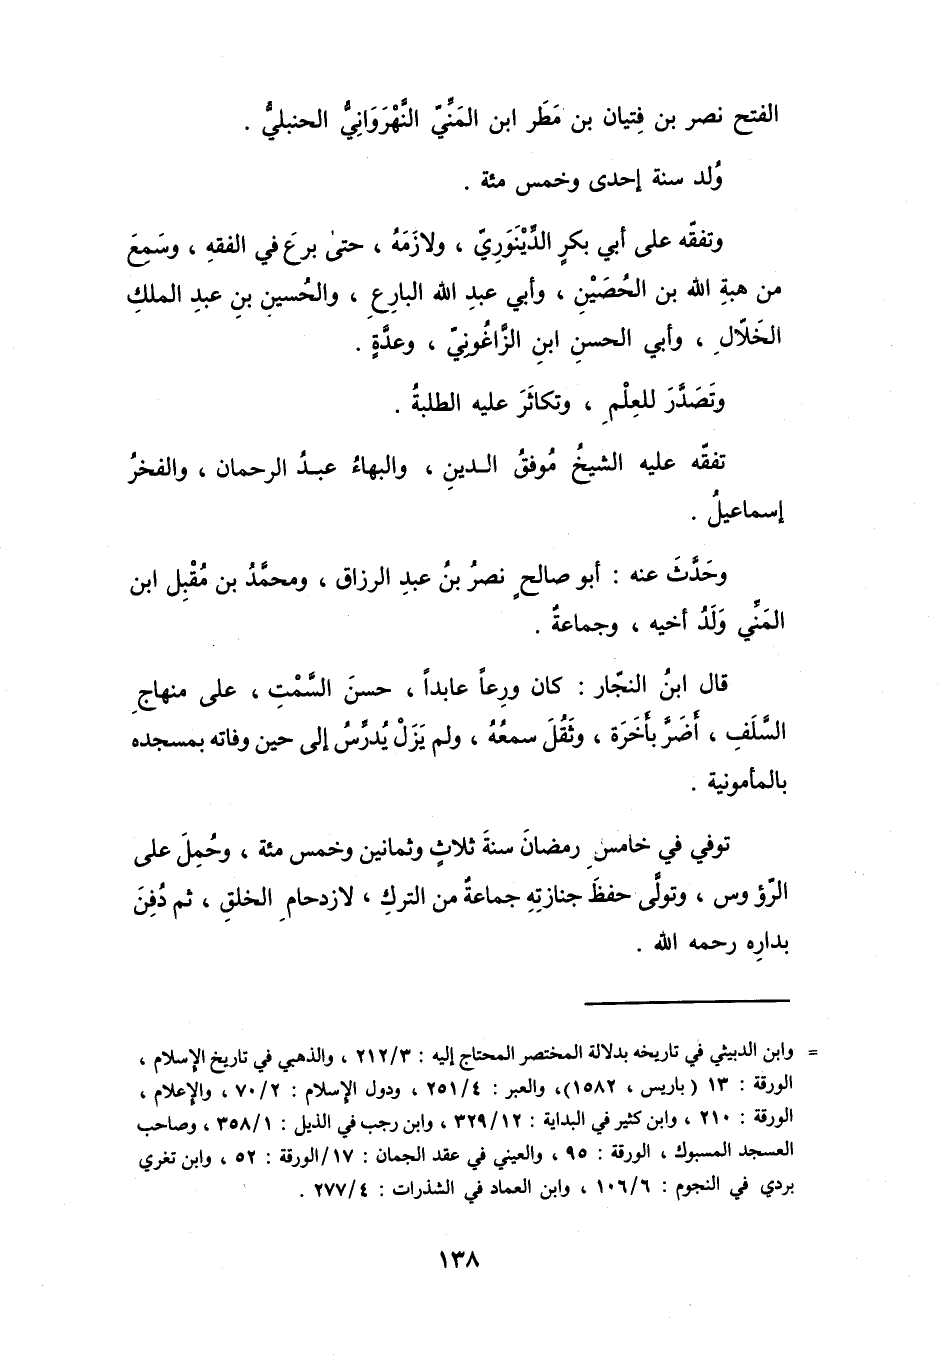 الفتح نصر بن فِتيان بن مَطَر ابن المَنِّيّ النَّهْرَوَانِيُّ الحنبليُّ .
وُلد سنة إحدى وخمس مئة .
وتفقّه على أبي بكرٍ الدِّيْنَوَرِيّ ، ولازَمَهُ ، حتىٰ برعَ في الفقهِ ، وسَمِعَ
من هبةِ الله بن الحُصَيْنِ ، وأبي عبدِ الله البارِعِ ، والحُسينِ بنِ عبدِ الملكِ
الخَلّالِ ، وأبي الحسنِ ابنِ الزَّاغُونِيّ ، وعدَّةٍ .
وتَصَدَّرَ للعِلْمِ ، وتكاثَرَ عليه الطلبةُ .
تفقّه عليه الشيخُ مُوفقُ الدينِ ، والبهاءُ عبدُ الرحمان ، والفخرُ
إسماعيلُ .
وحَدَّثَ عنه : أبو صالحٍ نصرُ بنُ عبدِ الرزاق ، ومحمَّدُ بن مُقْبِل ابن
المَنِّي وَلَدُ أخيه ، وجماعةٌ .
قال ابنُ النجّار : كان ورِعاً عابداً ، حسنَ السَّمْتِ ، على منهاجِ
السَّلَفِ ، أضَرَّ بأَخَرَة ، وثَقُلَ سمعُهُ ، ولم يَزَلْ يُدرِّسُ إلى حين وفاته بمسجده
بالمأمونية .
توفي في خامسِ رمضانَ سنةَ ثلاثٍ وثمانين وخمس مئة ، وحُمِلَ على
الرّؤوس ، وتولَّى حفظَ جنازتِهِ جماعةٌ من التركِ ، لازدحامِ الخلقِ ، ثم دُفِنَ
بدارِه رحمه الله .
= وابن الدبيثي في تاريخه بدلالة المختصر المحتاج إليه : ٢١٢/٣ ، والذهبي في تاريخ الإسلام ،
الورقة : ١٣ ( باريس ، ١٥٨٢)، والعبر : ٢٥١/٤ ، ودول الإسلام : ٧٠/٢ ، والإعلام ،
الورقة : ٢١٠ ، وابن كثير في البداية : ٣٢٩/١٢ ، وابن رجب في الذيل : ٣٥٨/١ ، وصاحب
العسجد المسبوك ، الورقة : ٩٥ ، والعيني في عقد الجمان : ١٧/الورقة : ٥٢ ، وابن تغري
بردي في النجوم : ١٠٦/٦ ، وابن العماد في الشذرات : ٢٧٧/٤ .
١٣٨